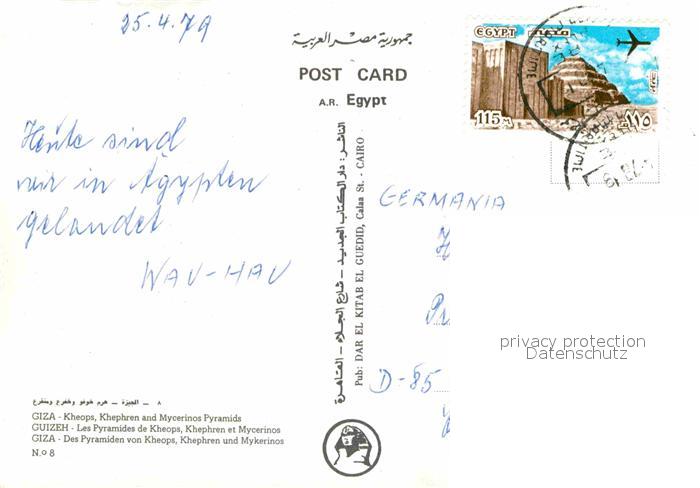 25.4.79
جمهورية مصر العربية
POST CARD
A.R. Egypt
EGYPT
115 M
١١٥
MARITIME
Heute sind
wir in Ägypten
gelandet
WAU-HAU
الناشر : دار الكتاب الجديد – شارع الجلاء – القاهرة
Pub: DAR EL KITAB EL GUEDID, Calaa St. - CAIRO
GERMANIA
D-85
privacy protection
Datenschutz
٨ – الجيزة – هرم خوفو وخفرع ومنقرع
GIZA - Kheops, Khephren and Mycerinos Pyramids
GUIZEH - Les Pyramides de Kheops, Khephren et Mycerinos
GIZA - Des Pyramiden von Kheops, Khephren und Mykerinos
N.o 8